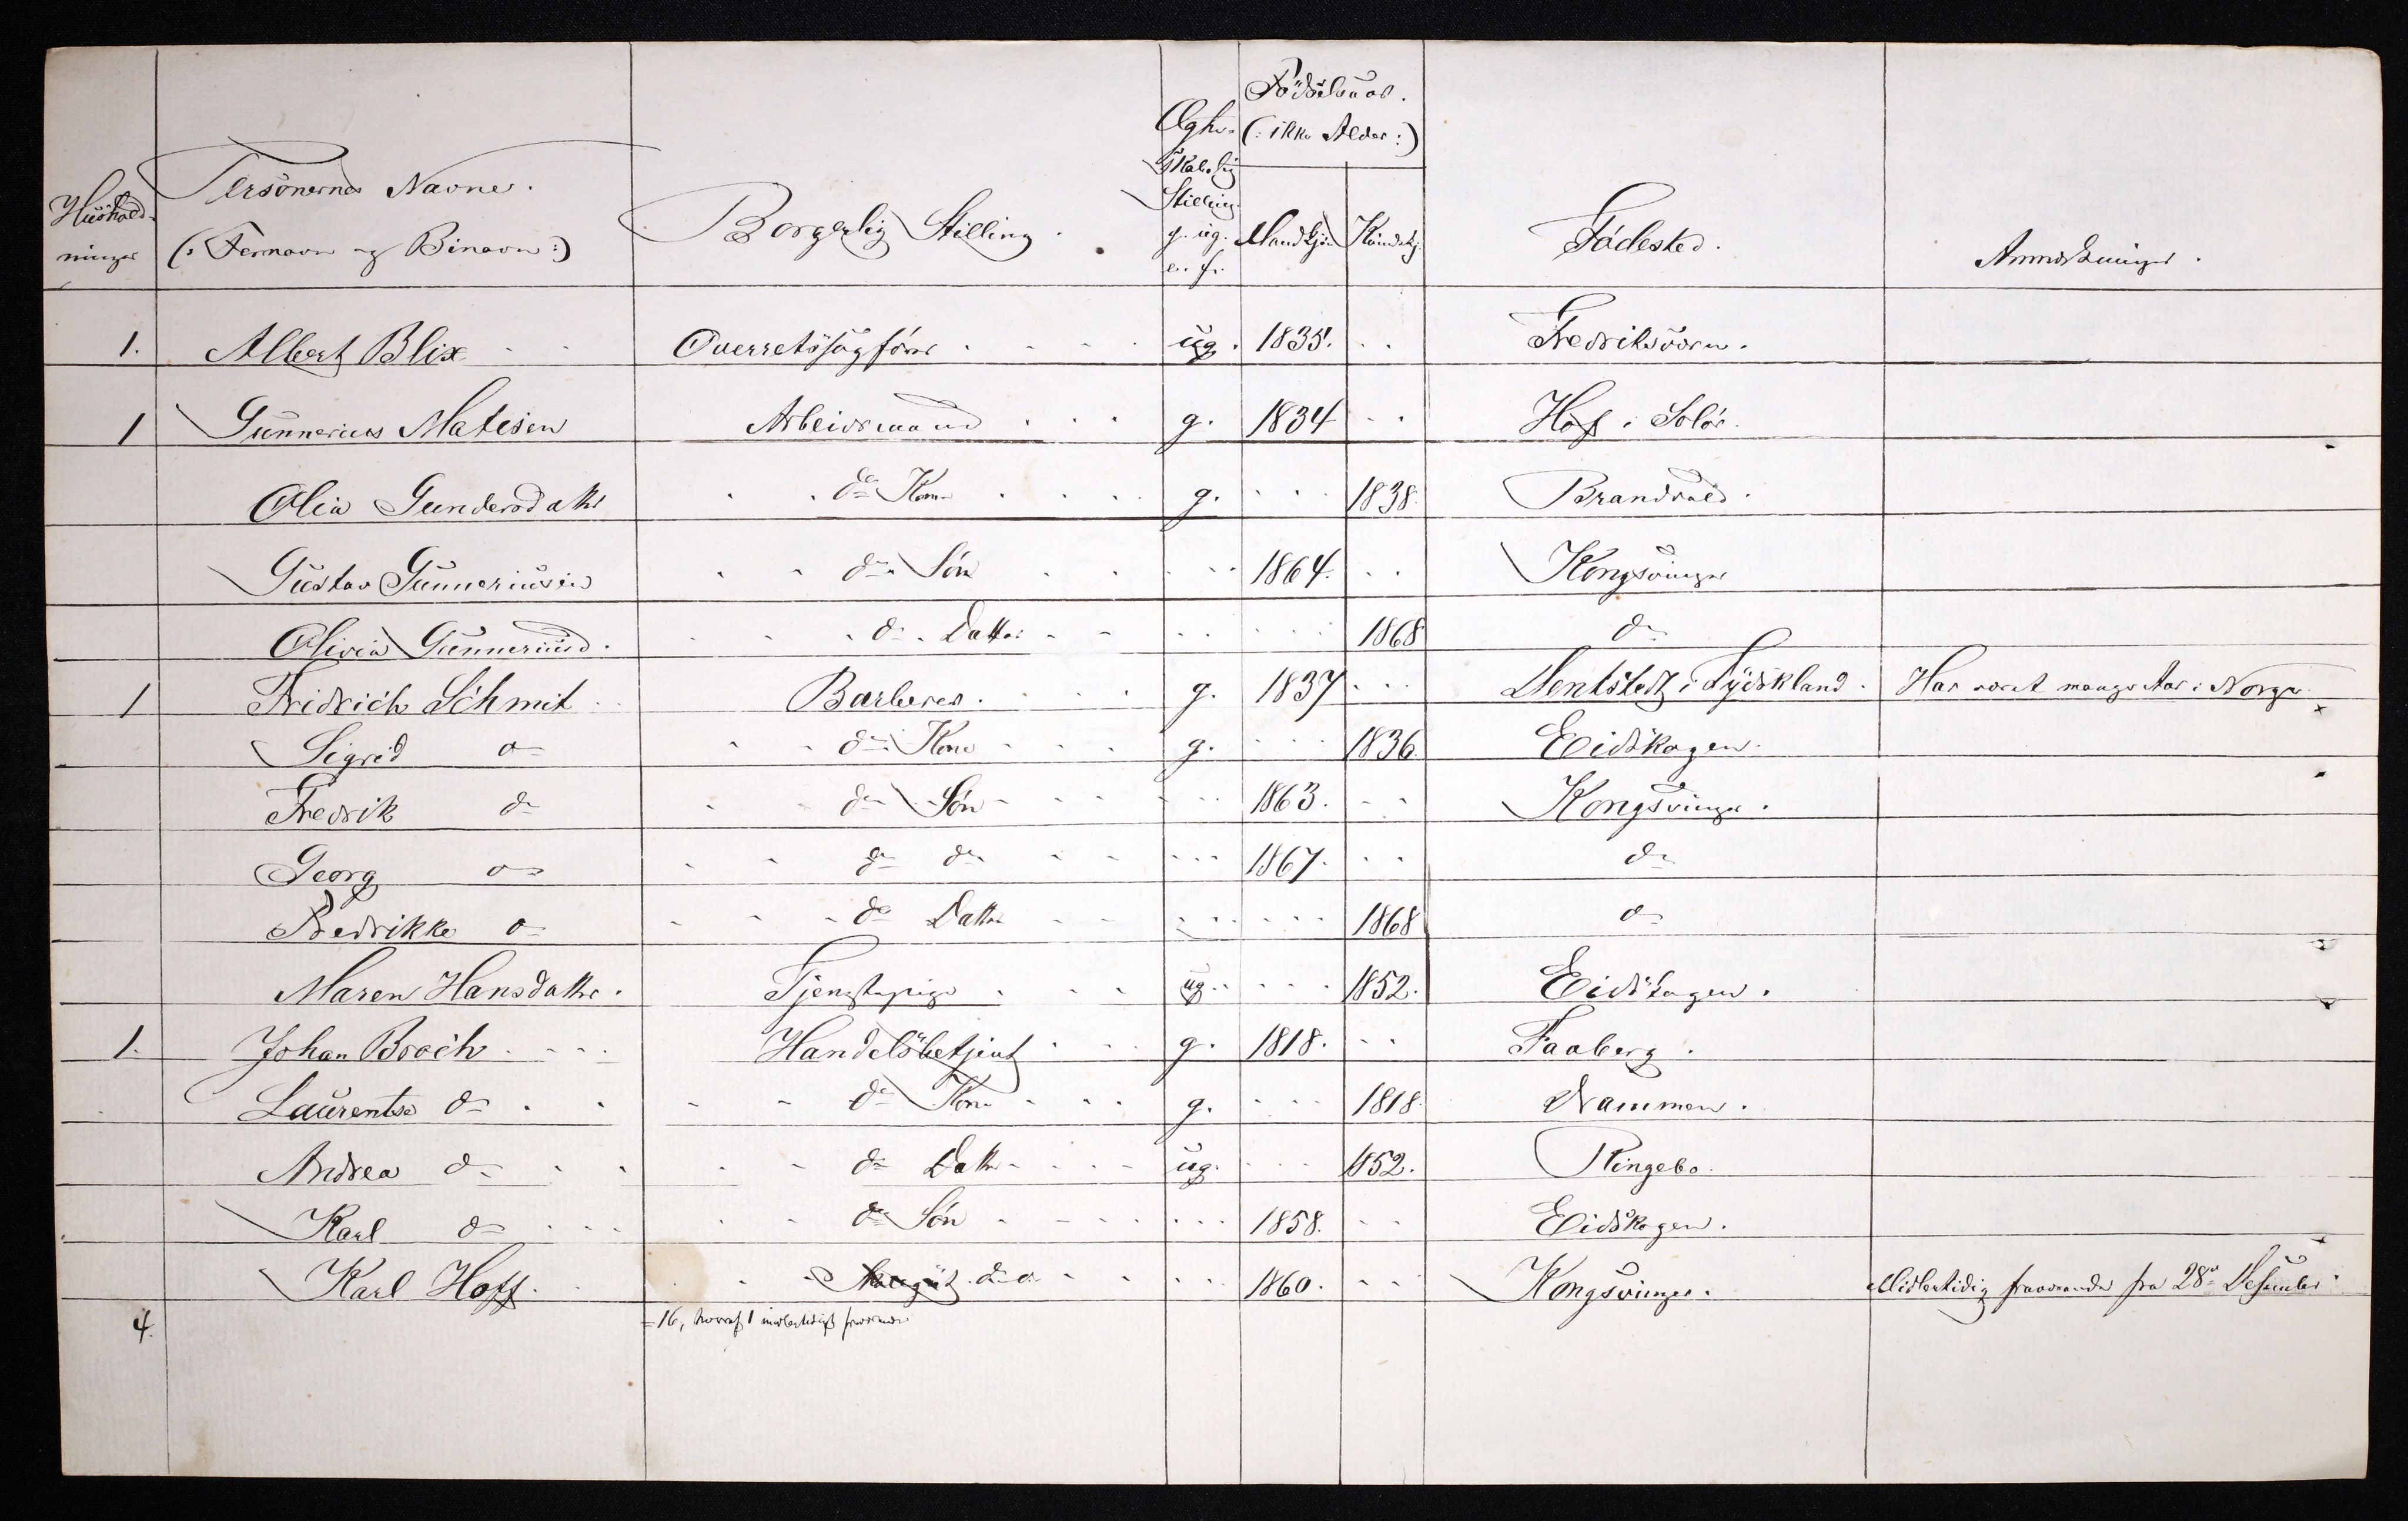 Hushold-
ninger
Personernes Navne.
(: Fornavn og Binavn :)
Borgerlig Stilling.
Ægte-
skabelig
Stilling.
g. ug.
e. f.
Fødselsaar.
(: ikke Alder :)
Mandkjøn Kvindekj.
Fødested.
Anmærkninger.
1. Albert Blix - - Overretssagfører - - - ug. 1835. - - Fredriksværn.
1 Gunnerius Matisen Arbeidsmand - - - g. 1834 - - Hof i Solør.
Olia Gundersdatter - - ds Kone - - - g. - - - 1838. Brandvold.
Gustav Gunneriusen - - ds Søn - - - - - 1864. - - Kongsvinger
Olivia Gunneriusd. - - - ds Datter - - - - - - 1868 do
1 Fridrich Schmit - - Barberer. - - - g. 1837 - - - i Tydskland. Har været mange Aar i Norge.
Sigrid do - - ds Kone - - - g. - - - 1836. Eidskogen.
Fredrik do - - ds Søn - - - - - 1863. - - Kongsvinger.
Georg do - - ds do - - - - - 1867. - - do
Fredrikke do - - - ds Datter - - - - - - 1868 do
Maren Hansdatter. Tjenestepige - - - ug. - - - 1852. Eidskogen.
1. Johan Broch - - - Handelsbetjent - - - g. 1818. - - Faaberg.
Laurentse do - - - - ds Kone - - - g. - - - 1818. Drammen.
Andrea do - - - - ds Datter - - - ug. - - - 1852. Ringebo.
Karl do - - - - ds Søn - - - - - - 1858. - - Eidskogen.
Karl Hoff. - - - - do - - - - - 1860. - - Kongsvinger. Midlertidig fraværende fra 28de Desember.
4. = 16, hvoraf 1 midlertidigt fraværende